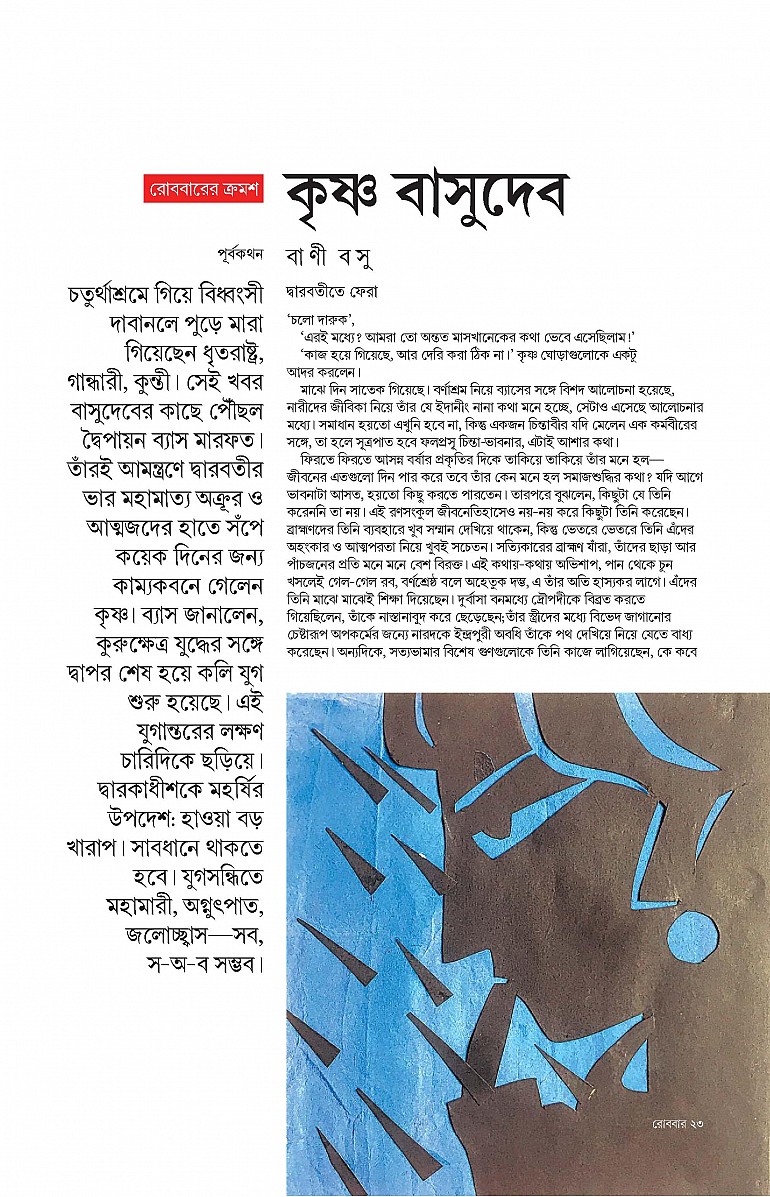 রোববারের ক্রমশ
কৃষ্ণ বাসুদেব
পূর্বকথন
চতুর্থাশ্রমে গিয়ে বিধ্বংসী
দাবানলে পুড়ে মারা
গিয়েছেন ধৃতরাষ্ট্র,
গান্ধারী, কুন্তী। সেই খবর
বাসুদেবের কাছে পৌঁছল
দ্বৈপায়ন ব্যাস মারফত।
তাঁরই আমন্ত্রণে দ্বারবতীর
ভার মহামাত্য অক্রূর ও
আত্মজদের হাতে সঁপে
কয়েক দিনের জন্য
কাম্যকবনে গেলেন
কৃষ্ণ। ব্যাস জানালেন,
কুরুক্ষেত্র যুদ্ধের সঙ্গে
দ্বাপর শেষ হয়ে কলি যুগ
শুরু হয়েছে। এই
যুগান্তরের লক্ষণ
চারিদিকে ছড়িয়ে।
দ্বারকাধীশকে মহর্ষির
উপদেশ: হাওয়া বড়
খারাপ। সাবধানে থাকতে
হবে। যুগসন্ধিতে
মহামারী, অগ্নুৎপাত,
জলোচ্ছ্বাস—সব,
স-অ-ব সম্ভব।
বাণী বসু
দ্বারবতীতে ফেরা
‘চলো দারুক’,
‘এরই মধ্যে? আমরা তো অন্তত মাসখানেকের কথা ভেবে এসেছিলাম!’
‘কাজ হয়ে গিয়েছে, আর দেরি করা ঠিক না।’ কৃষ্ণ ঘোড়াগুলোকে একটু
আদর করলেন।
মাঝে দিন সাতেক গিয়েছে। বর্ণাশ্রম নিয়ে ব্যাসের সঙ্গে বিশদ আলোচনা হয়েছে,
নারীদের জীবিকা নিয়ে তাঁর যে ইদানীং নানা কথা মনে হচ্ছে, সেটাও এসেছে আলোচনার
মধ্যে। সমাধান হয়তো এখুনি হবে না, কিন্তু একজন চিন্তাবীর যদি মেলেন এক কর্মবীরের
সঙ্গে, তা হলে সূত্রপাত হবে ফলপ্রসূ চিন্তা-ভাবনার, এটাই আশার কথা।
ফিরতে ফিরতে আসন্ন বর্ষার প্রকৃতির দিকে তাকিয়ে তাকিয়ে তাঁর মনে হল—
জীবনের এতগুলো দিন পার করে তবে তাঁর কেন মনে হল সমাজশুদ্ধির কথা? যদি আগে
ভাবনাটা আসত, হয়তো কিছু করতে পারতেন। তারপরে বুঝলেন, কিছুটা যে তিনি
করেননি তা নয়। এই রণসংকুল জীবনেতিহাসেও নয়-নয় করে কিছুটা তিনি করেছেন।
ব্রাহ্মণদের তিনি ব্যবহারে খুব সম্মান দেখিয়ে থাকেন, কিন্তু ভেতরে ভেতরে তিনি এঁদের
অহংকার ও আত্মপরতা নিয়ে খুবই সচেতন। সত্যিকারের ব্রাহ্মণ যাঁরা, তাঁদের ছাড়া আর
পাঁচজনের প্রতি মনে মনে বেশ বিরক্ত। এই কথায়-কথায় অভিশাপ, পান থেকে চুন
খসলেই গেল-গেল রব, বর্ণশ্রেষ্ঠ বলে অহেতুক দম্ভ, এ তাঁর অতি হাস্যকর লাগে। এঁদের
তিনি মাঝে মাঝেই শিক্ষা দিয়েছেন। দুর্বাসা বনমধ্যে দ্রৌপদীকে বিব্রত করতে
গিয়েছিলেন, তাঁকে নাস্তানাবুদ করে ছেড়েছেন;তাঁর স্ত্রীদের মধ্যে বিভেদ জাগানোর
চেষ্টারূপ অপকর্মের জন্যে নারদকে ইন্দ্রপুরী অবধি তাঁকে পথ দেখিয়ে নিয়ে যেতে বাধ্য
করেছেন। অন্যদিকে, সত্যভামার বিশেষ গুণগুলোকে তিনি কাজে লাগিয়েছেন, কে কবে
রোববার ২৩